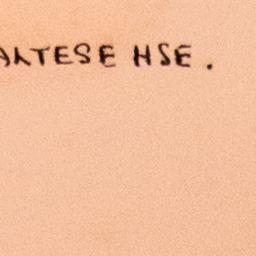 ALTESE HSE.